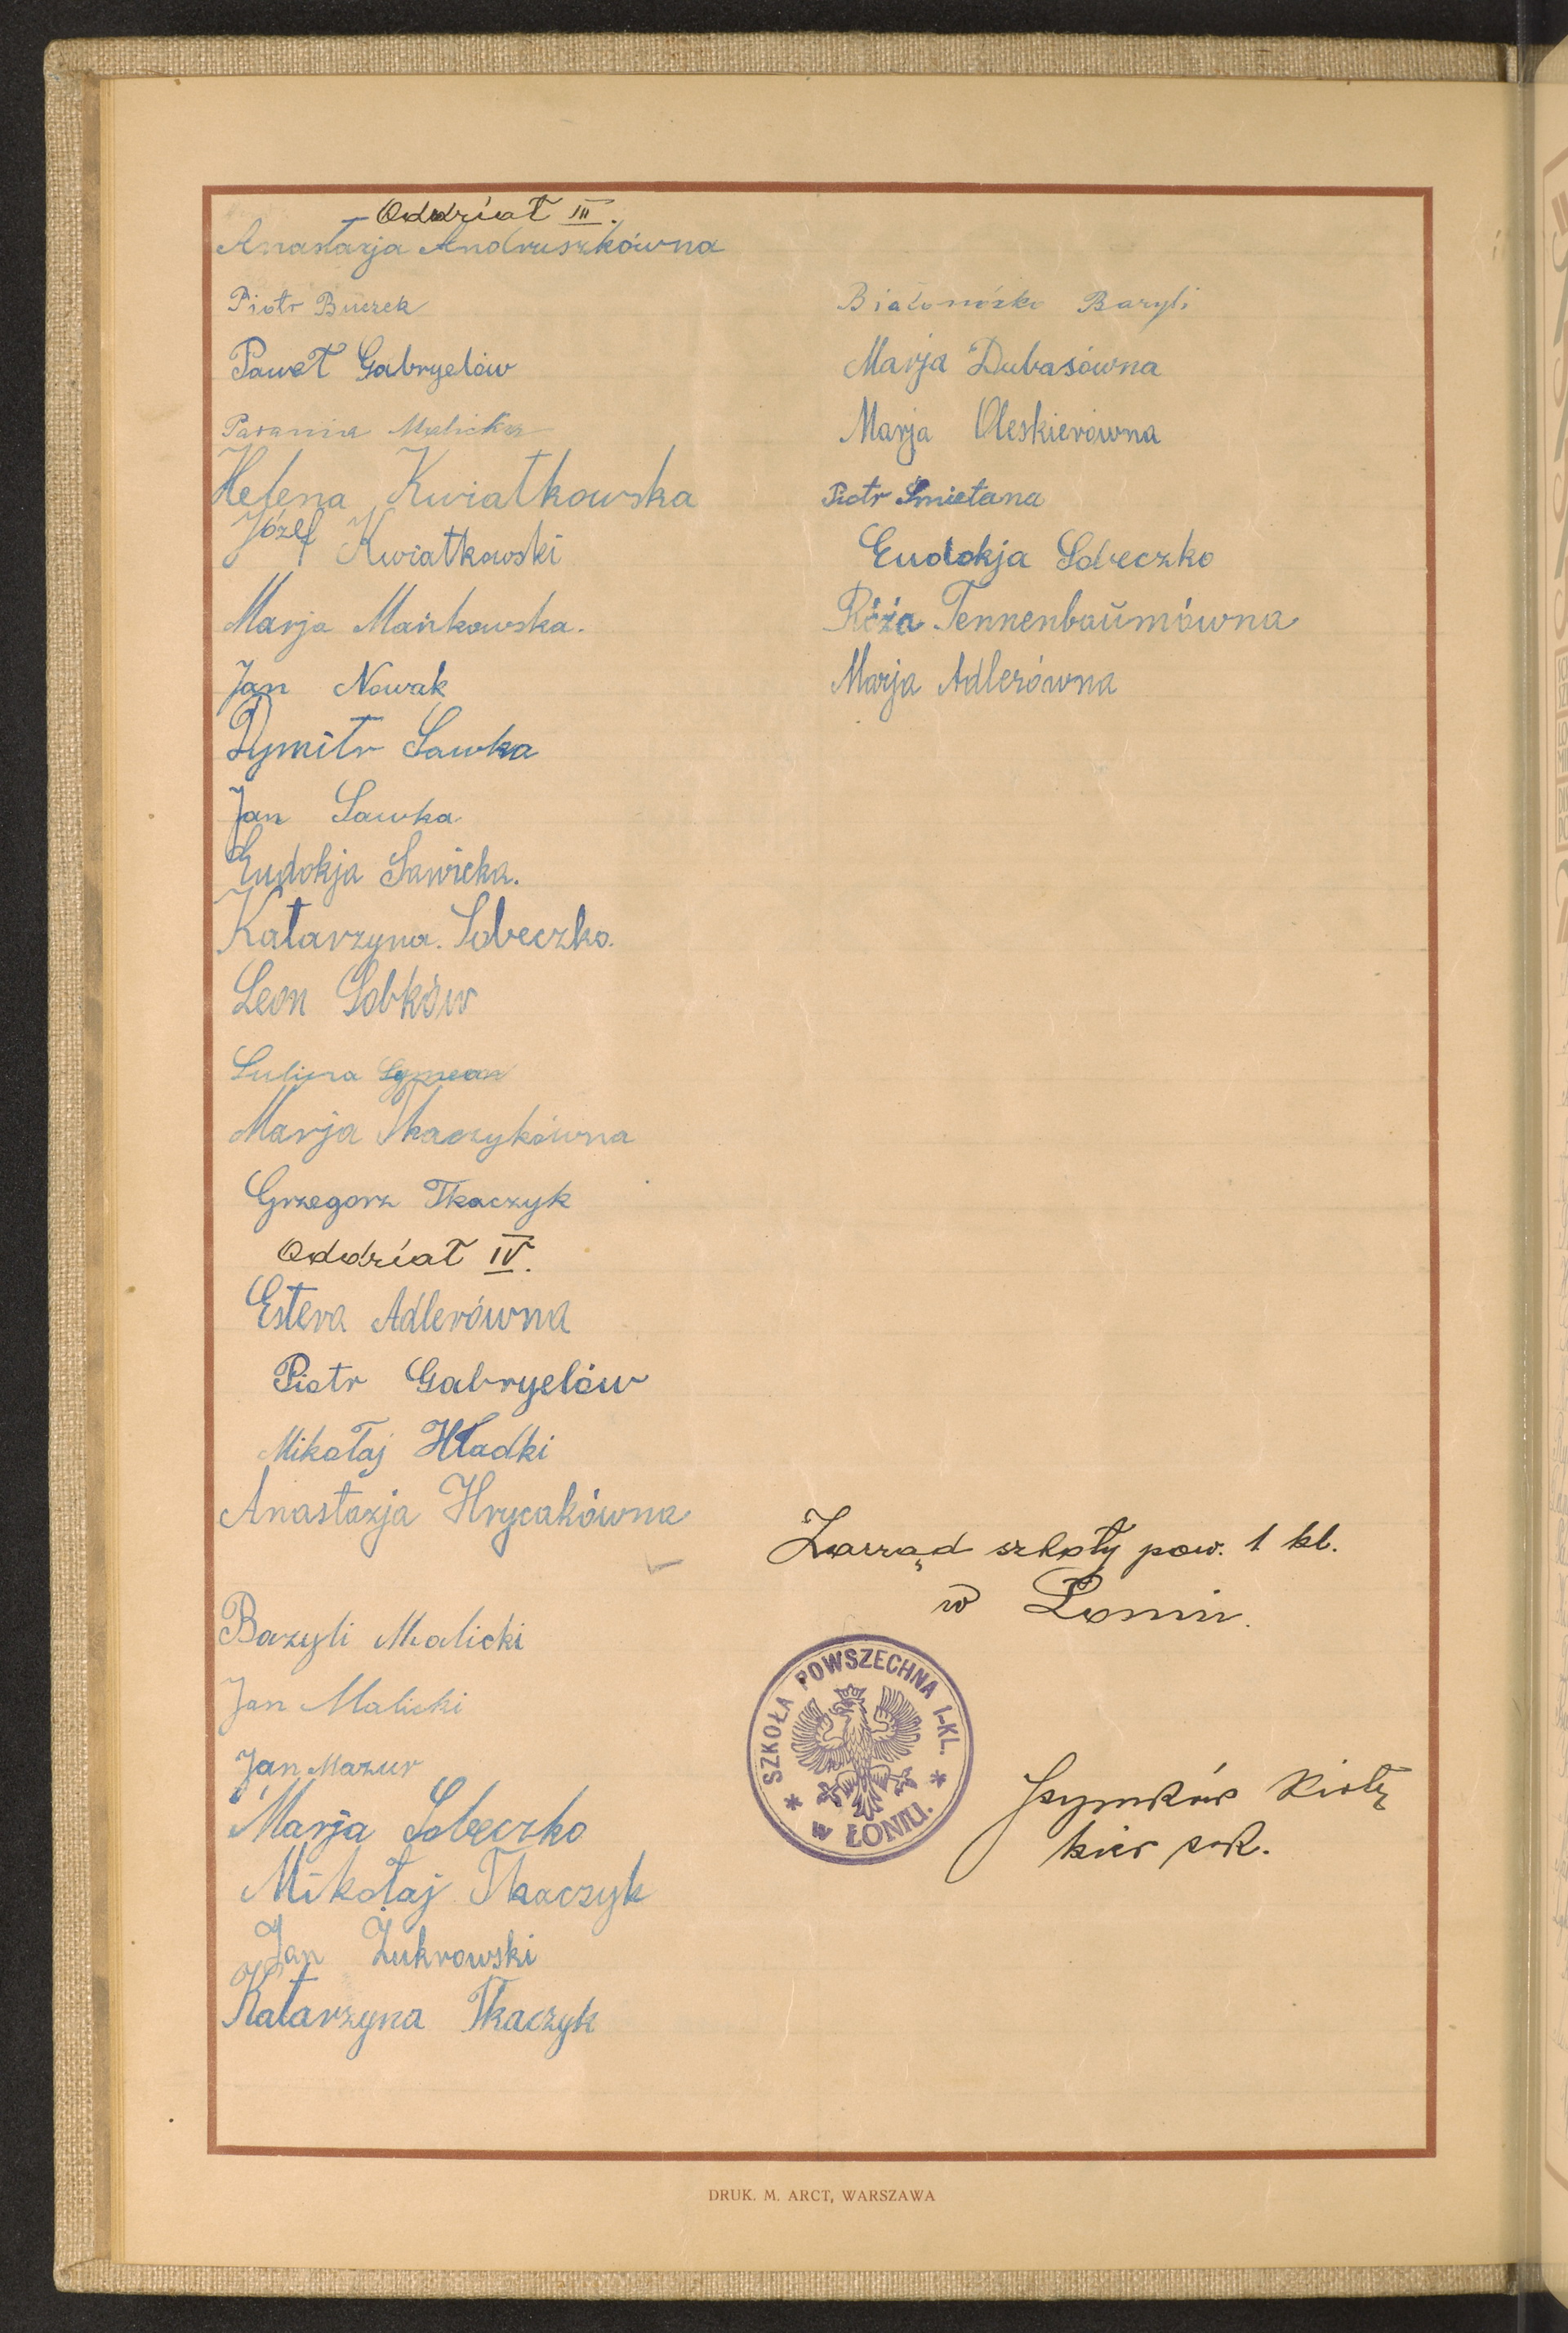 Oddział III.
Anastazja Andruszkówna
Piotr Buczek
Paweł Gabryelów
Parania Malicka
Helena Kwiatkowska
Józef Kwiatkowski
Marja Mańkowska.
Jan Nowak
Dymitr Sawka
Jan Sawka
Eudokja Sawicka.
Katarzyna. Sobeczko.
Leon Sobków
Sulima
Marja Tkaczykówna
Grzegorz Tkaczyk
Oddział IV.
Estera Adlerówna
Piotr Gabryelów
Mikołaj Hładki
Anastazja Hrycakówna
Bazyli Malicki
Jan Malicki
Jan Mazur
Marja Sobeczko
Mikołaj Tkaczyk
Jan Żukrowski
Katarzyna Tkaczyk
Białonóżko Bazyli
Marja Dubasówna
Marja Oleskierówna
Piotr Smietana
Eudokja Sobeczko
Róża Tennenbaŭmówna
Marja Adlerówna
Zarząd szkoły pow. 1 kl.
w Łoniu.
* SZKOŁA POWSZECHNA 1-KL. *
w ŁONIU.
Szymków
kier szk.
DRUK. M. ARCT, WARSZAWA